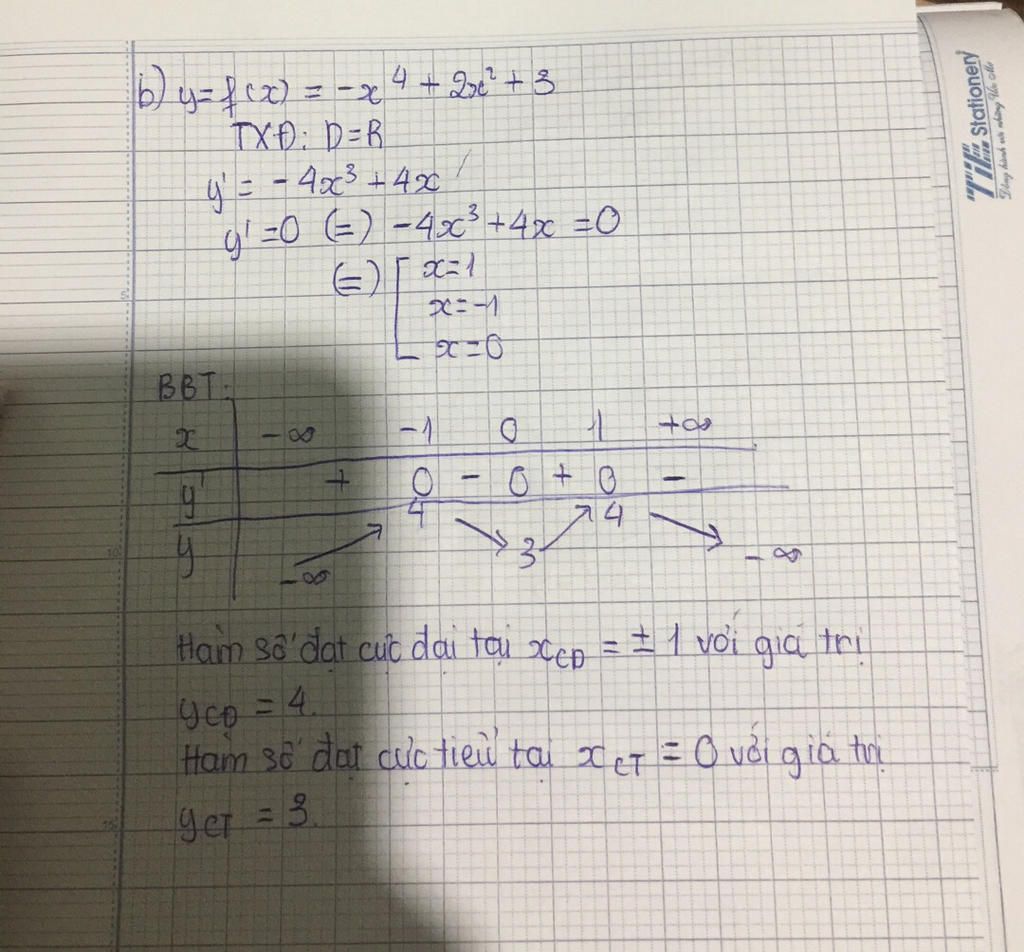 b) y=f(x) = -x⁴ + 2x² + 3
TXĐ: D=R
y' = -4x³ + 4x
y'=0 (=) -4x³ + 4x = 0
(=) [ x=1
x=-1
x=0
BBT:
x -∞ -1 0 1 +∞
y' + 0 - 0 + 0 -
y -∞ ↗ 4 ↘ 3 ↗ 4 ↘ -∞
Hàm số đạt cực đại tại xCĐ = ± 1 với giá trị
yCĐ = 4.
Hàm số đạt cực tiểu tại xCT = 0 với giá trị
yCT = 3.
5
10
15
TiTi Stationery